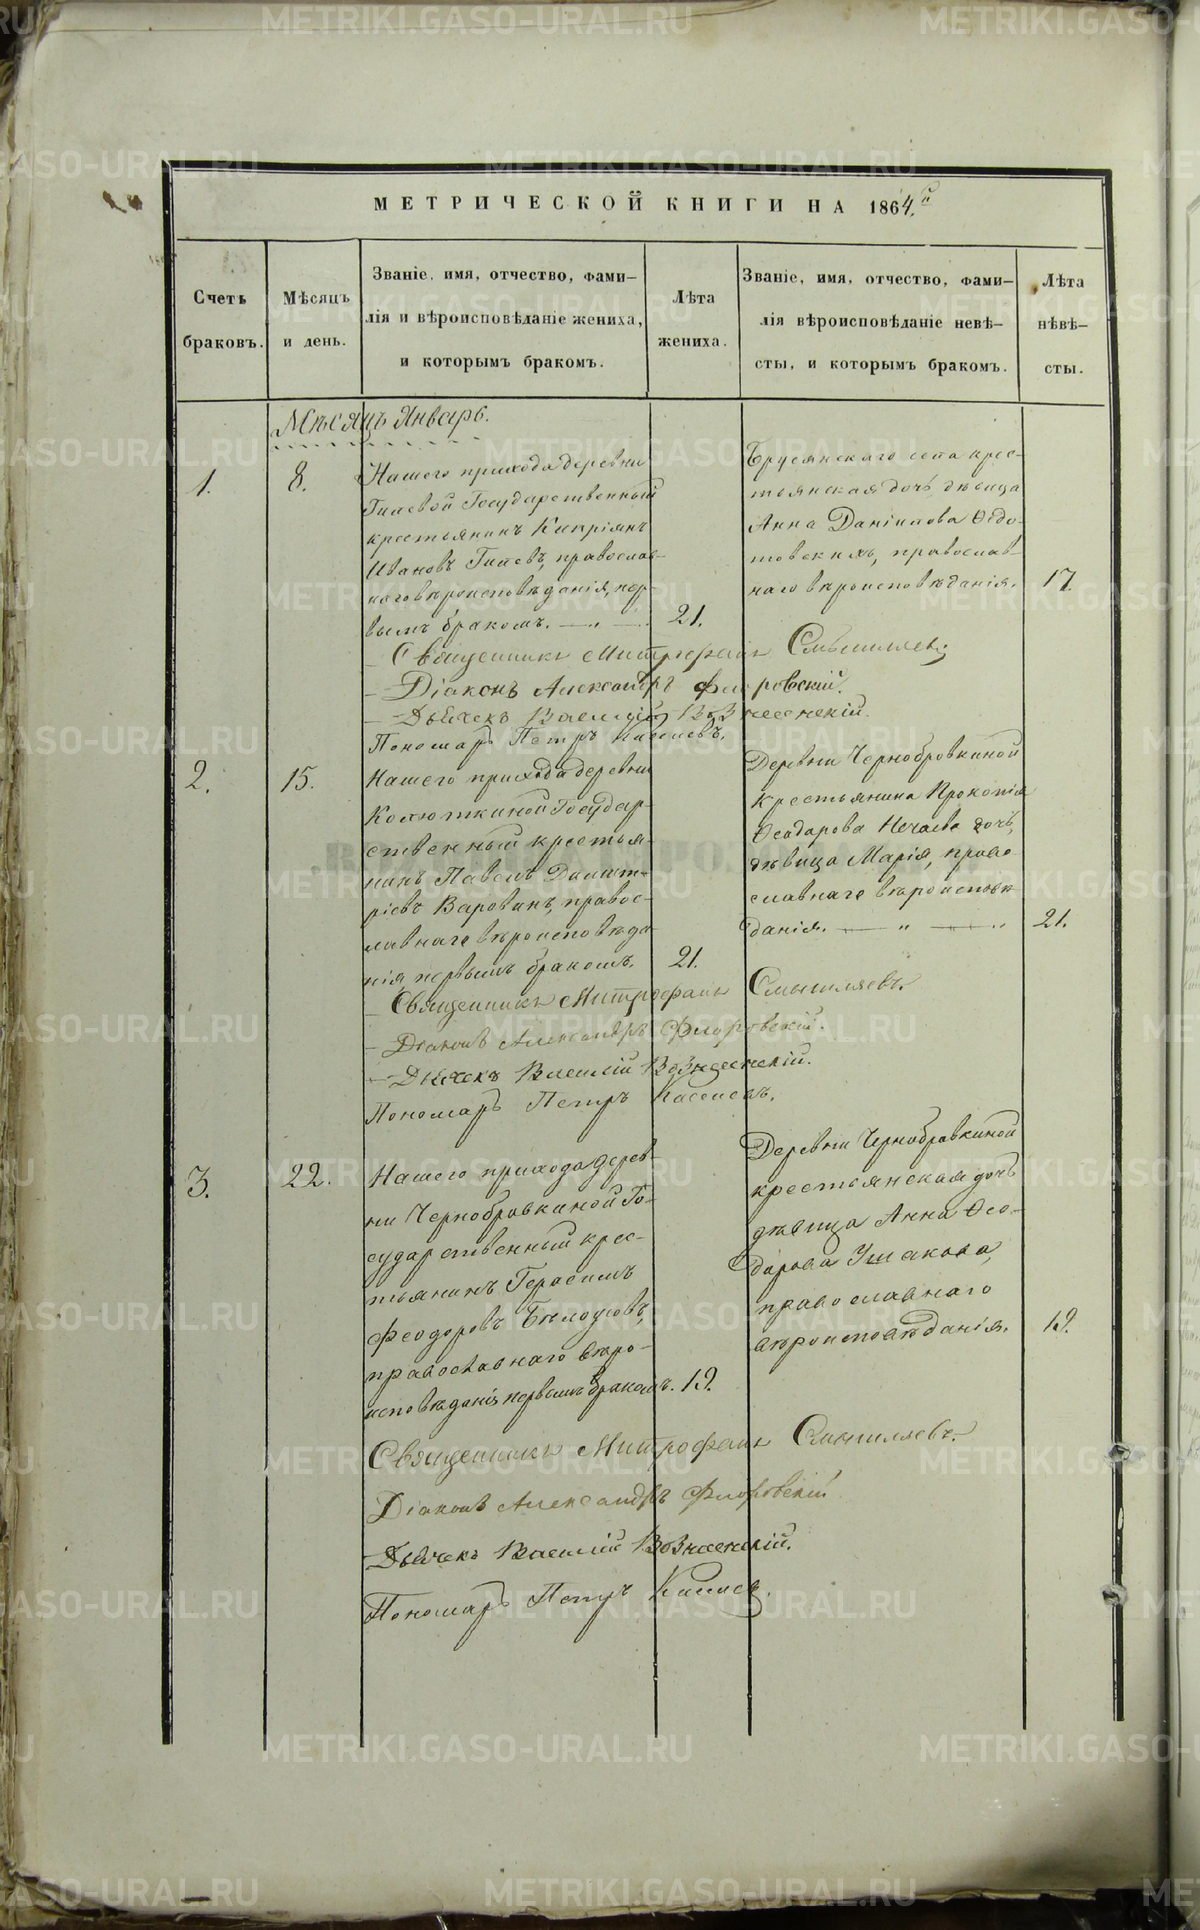 МЕТРИЧЕСКОЙ КНИГИ НА 1864.й
Счетъ
браковъ.
Мѣсяцъ
и день.
Званіе, имя, отчество, фами-
лія и вѣроисповѣданіе жениха,
и которымъ бракомъ.
Лѣта
жениха.
Званіе, имя, отчество, фами-
лія вѣроисповѣданіе невѣ-
сты, и которымъ бракомъ.
Лѣта
нѣвѣ-
сты.
Мѣсяцъ Январь.
1.
8.
Нашего прихода деревни
Гилевой Государственный
крестьянинъ Кипріянъ
Ивановъ Гилевъ, православ-
наго вѣроисповѣданія, пер-
вымъ бракомъ. — „ —
21.
Брусянскаго села крес-
тьянская дочь дѣвица
Анна Даніилова Ѳедо-
товскихъ, православ-
наго вѣроисповѣданія.
17.
Священникъ Митрофанъ Смышляевъ
Діаконъ Александръ Флоровскій.
Дьячекъ Василій Вознесенскій.
Пономарь Петръ Кассіевъ.
2.
15.
Нашего прихода деревни
Колюткиной Государ-
ственный крестья-
нинъ Павелъ Димит-
ріевъ Варовинъ, правос-
лавнаго вѣроисповѣда-
нія первымъ бракомъ.
21.
Деревни Чернобровкиной
крестьянина Прокопія
Ѳеодорова Нечаева дочь,
дѣвица Марія, право-
славнаго вѣроисповѣ-
данія. — „ — „
21.
Священникъ Митрофанъ Смышляевъ.
Діаконъ Александръ Флоровскій.
Дьячекъ Василій Вознесенскій.
Пономарь Петръ Кассіевъ.
3.
22.
Нашего прихода дерев-
ни Чернобровкиной Го-
сударственный крес-
тьянинъ Герасимъ
Феодоровъ Бѣлоусовъ,
православнаго вѣро-
исповѣданія первымъ бракомъ.
19.
Деревни Чернобровкиной
крестьянская дочь
дѣвица Анна Ѳео-
дорова Ушакова,
православнаго
вѣроисповѣданія.
19.
Священникъ Митрофанъ Смышляевъ.
Діаконъ Александръ Флоровскій
Дьячекъ Василій Вознесенскій.
Пономарь Петръ Кассіевъ.
METRIKI.GASO-URAL.RU